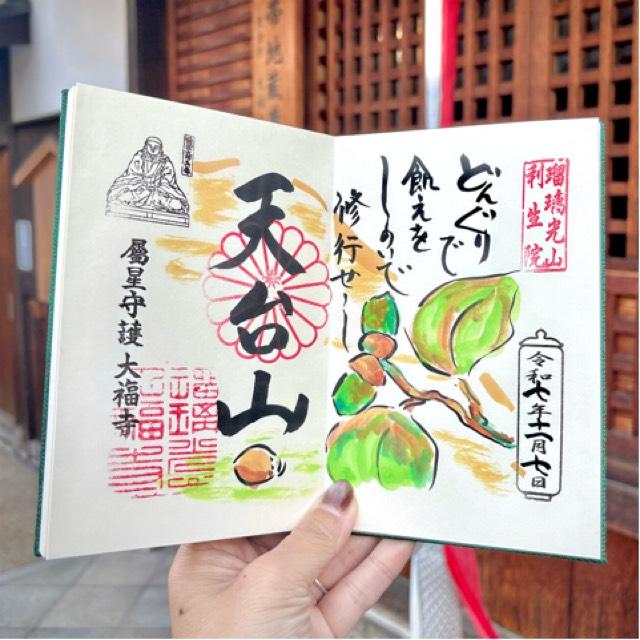 瑠璃光山
利生院
どんぐり
で
飢えを
しのいで
修行せし
令和七年十一月七日
天台山
屬星守護 大福寺